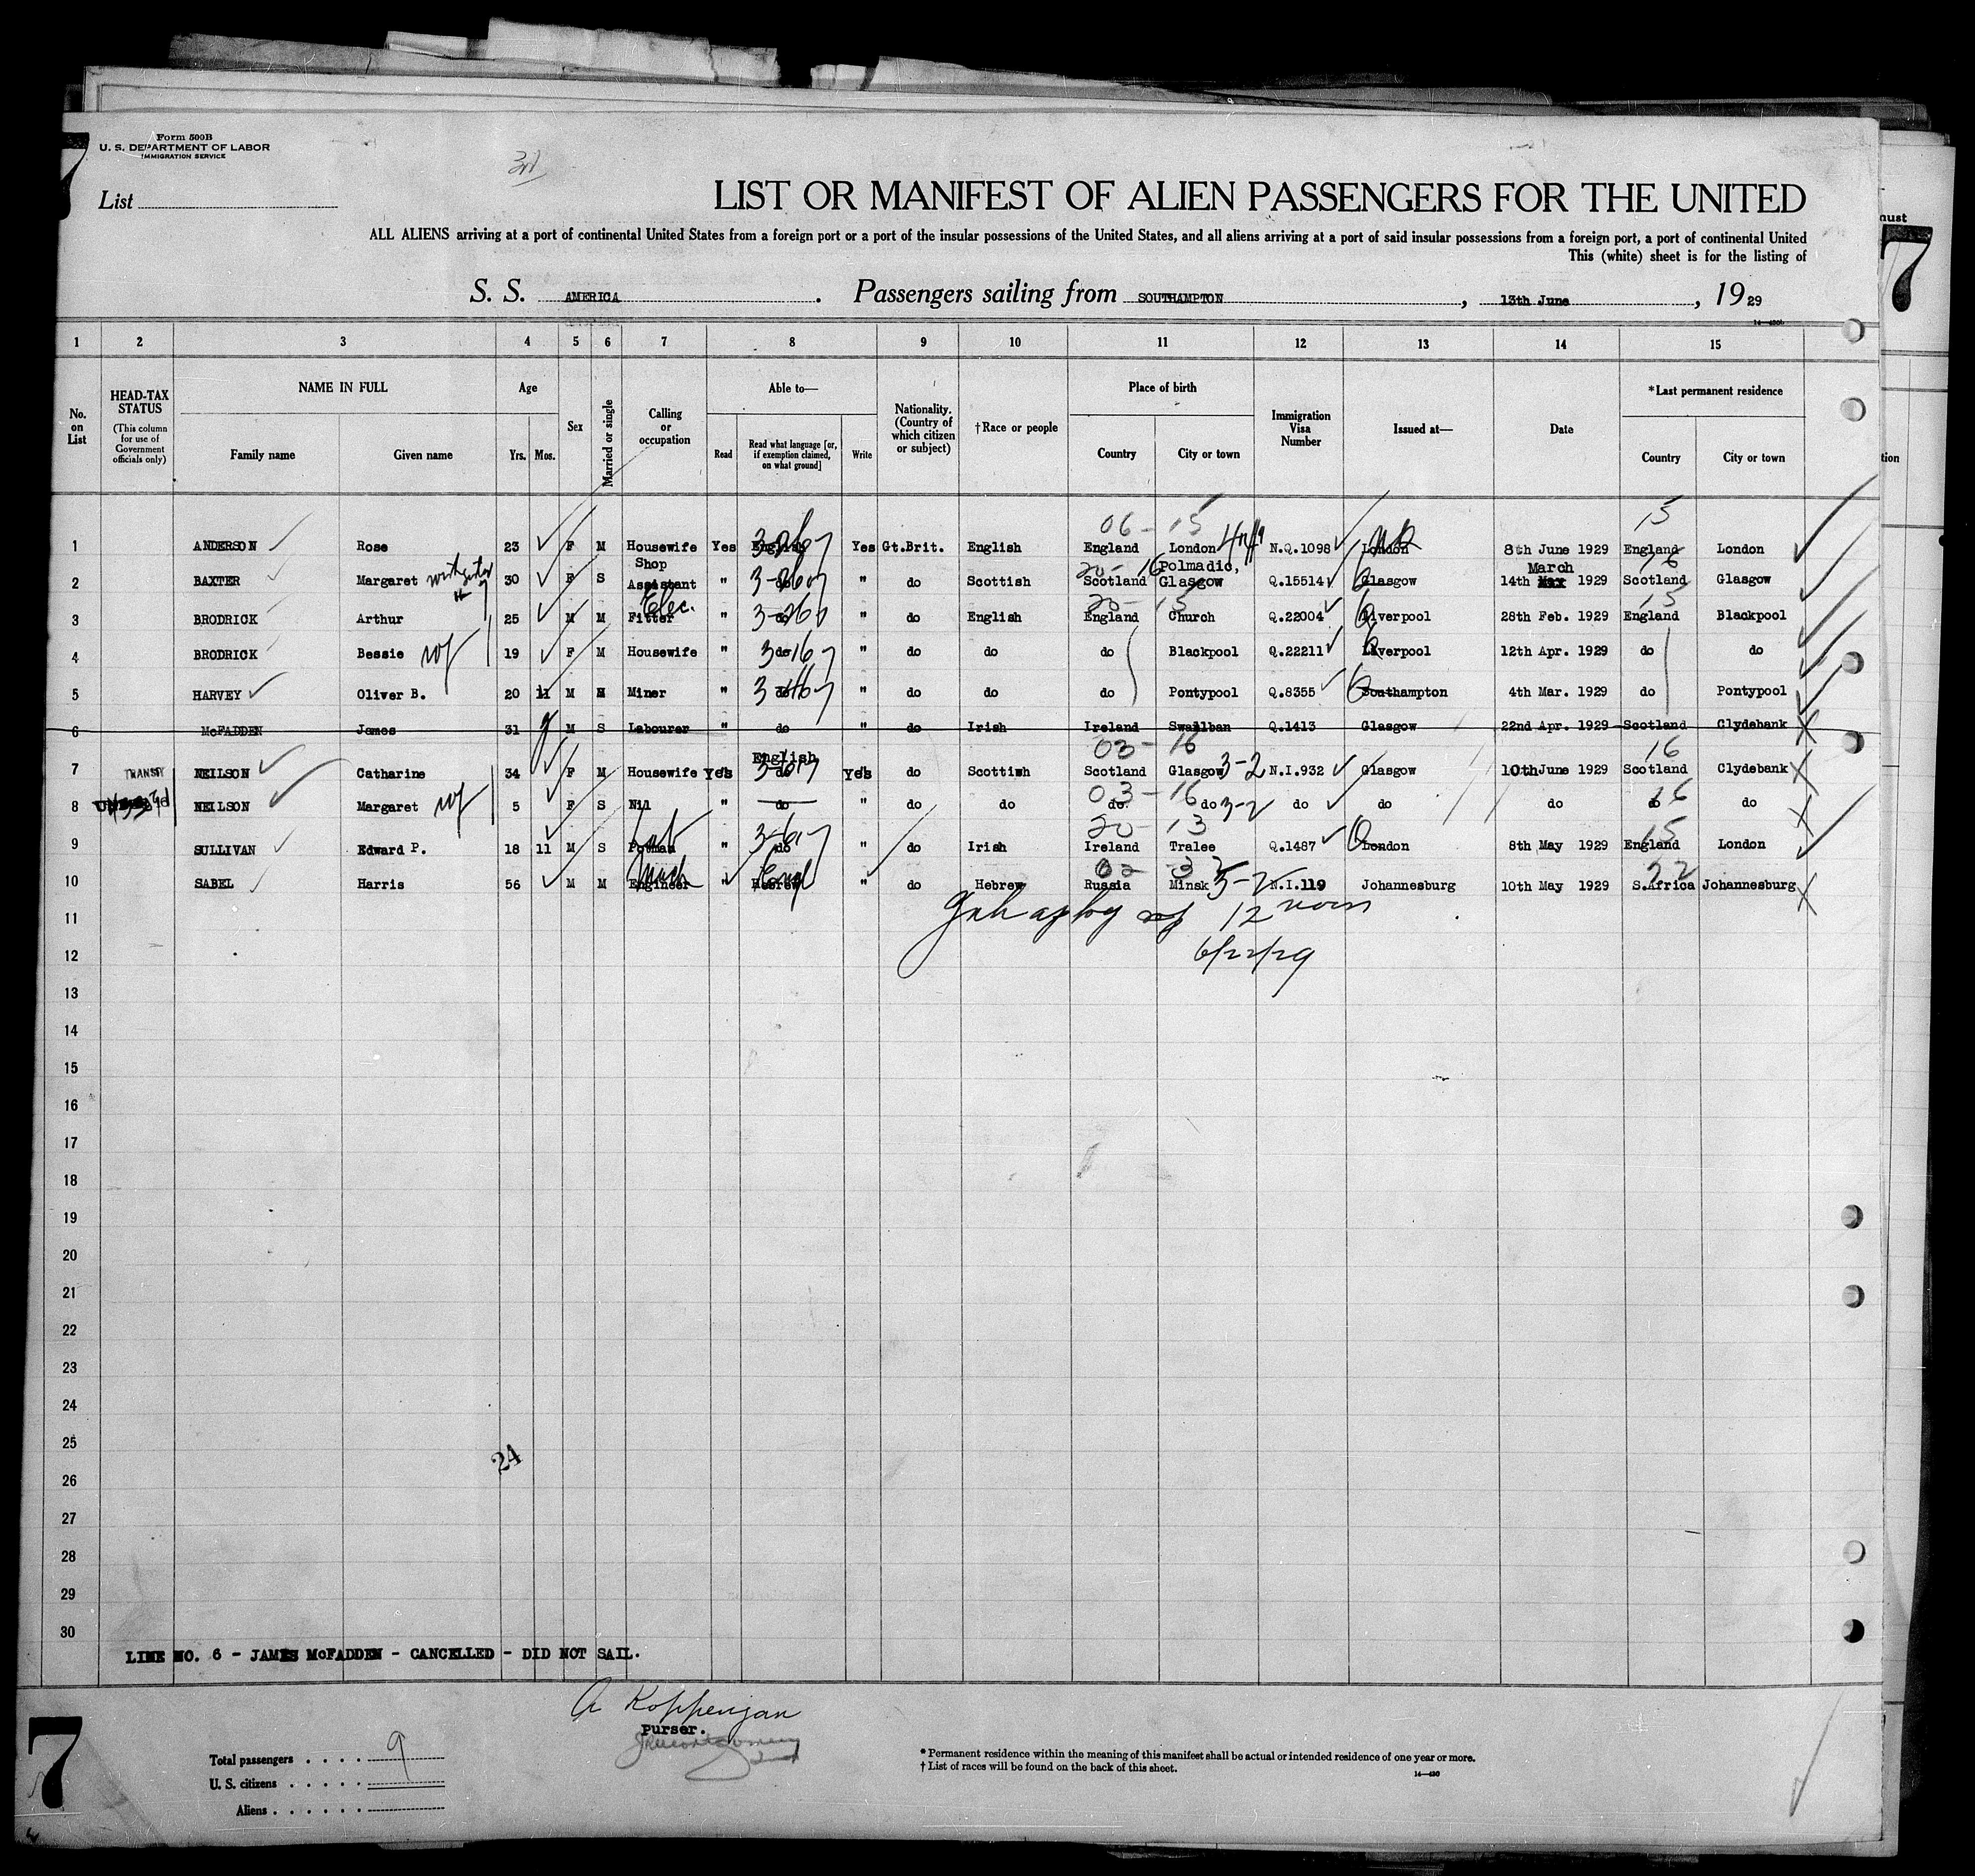 Form 500B
U. S. DEPARTMENT OF LABOR
IMMIGRATION SERVICE
3rd
List
LIST OR MANIFEST OF ALIEN PASSENGERS FOR THE UNITED
ALL ALIENS arriving at a port of continental United States from a foreign port or a port of the insular possessions of the United States, and all aliens arriving at a port of said insular possessions from a foreign port, a port of continental United
This (white) sheet is for the listing of
S. S. AMERICA. Passengers sailing from SOUTHAMPTON, 13th June, 1929
1 2 3 4 5 6 7 8 9 10 11 12 13 14 15
No. on List
HEAD-TAX STATUS (This column for use of Government officials only)
NAME IN FULL Family name Given name
Age Yrs. Mos.
Sex
Married or single
Calling or occupation
Able to— Read Read what language [or, if exemption claimed, on what ground] Write
Nationality. (Country of which citizen or subject)
†Race or people
Place of birth Country City or town
Immigration Visa Number
Issued at—
Date
*Last permanent residence Country City or town
06- 15 15
1 ANDERSON Rose 23 F M Housewife Yes English Yes Gt.Brit. English England London N.Q.1098 London 8th June 1929 England London
2 BAXTER Margaret 30 F S Shop Assistant " do " do Scottish Scotland Polmadic, Glasgow Q.15514 Glasgow 14th March 1929 Scotland Glasgow
3 BRODRICK Arthur 25 M M Elec. Fitter " do " do English England Church Q.22004 Liverpool 28th Feb. 1929 England Blackpool
4 BRODRICK Bessie 19 F M Housewife " do " do do do Blackpool Q.22211 Liverpool 12th Apr. 1929 do do
5 HARVEY Oliver B. 20 11 M M Miner " do " do do do Pontypool Q.8355 Southampton 4th Mar. 1929 do Pontypool
6 McFADDEN James 31 M S Labourer " do " do Irish Ireland Swailban Q.1413 Glasgow 22nd Apr. 1929 Scotland Clydebank
03- 16 16
7 TRANSIT NEILSON Catharine 34 F M Housewife Yes English Yes do Scottish Scotland Glasgow 3-2 N.I.932 Glasgow 10th June 1929 Scotland Clydebank
03- 16 16
8 NEILSON Margaret 5 F S Nil " do " do do do do 3-2 do do do do do
20- 13 15
9 SULLIVAN Edward P. 18 11 M S " do " do Irish Ireland Tralee Q.1487 London 8th May 1929 England London
10 SABEL Harris 56 M M Engineer " Hebrew " do Hebrew Russia Minsk 3-2 N.I.119 Johannesburg 10th May 1929 S.Africa Johannesburg
11 12 noon
12 6/22/29
13
14
15
16
17
18
19
20
21
22
23
24
25
24
26
27
28
29
30
LINE NO. 6 - JAMES McFADDEN - CANCELLED - DID NOT SAIL.
A Koppenjan
purser.
7
Total passengers 9
U. S. citizens
Aliens
* Permanent residence within the meaning of this manifest shall be actual or intended residence of one year or more.
† List of races will be found on the back of this sheet.
14—430
7